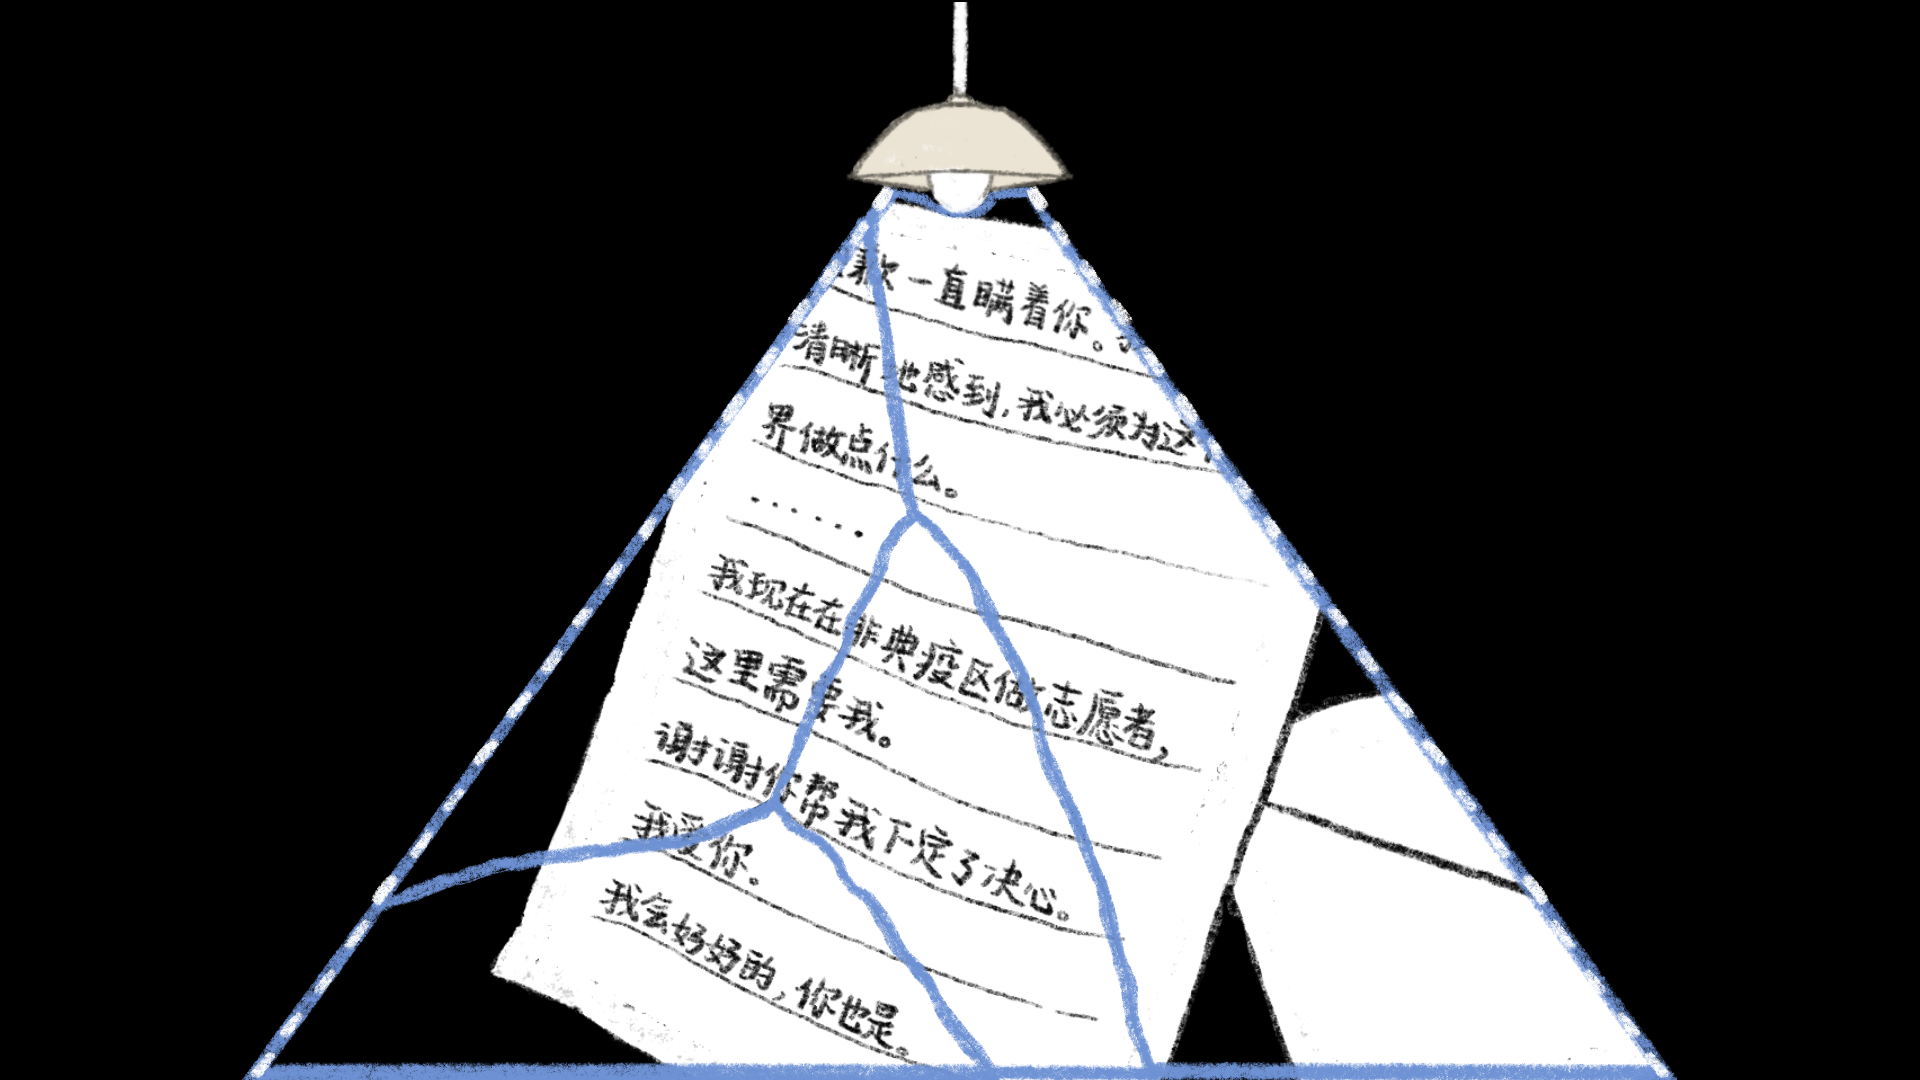 歉一直瞒着你。
清晰地感到，我必须为这个
界做点什么。
······
我现在在非典疫区做志愿者，
这里需要我。
谢谢你帮我下定了决心。
我爱你。
我会好好的，你也是。